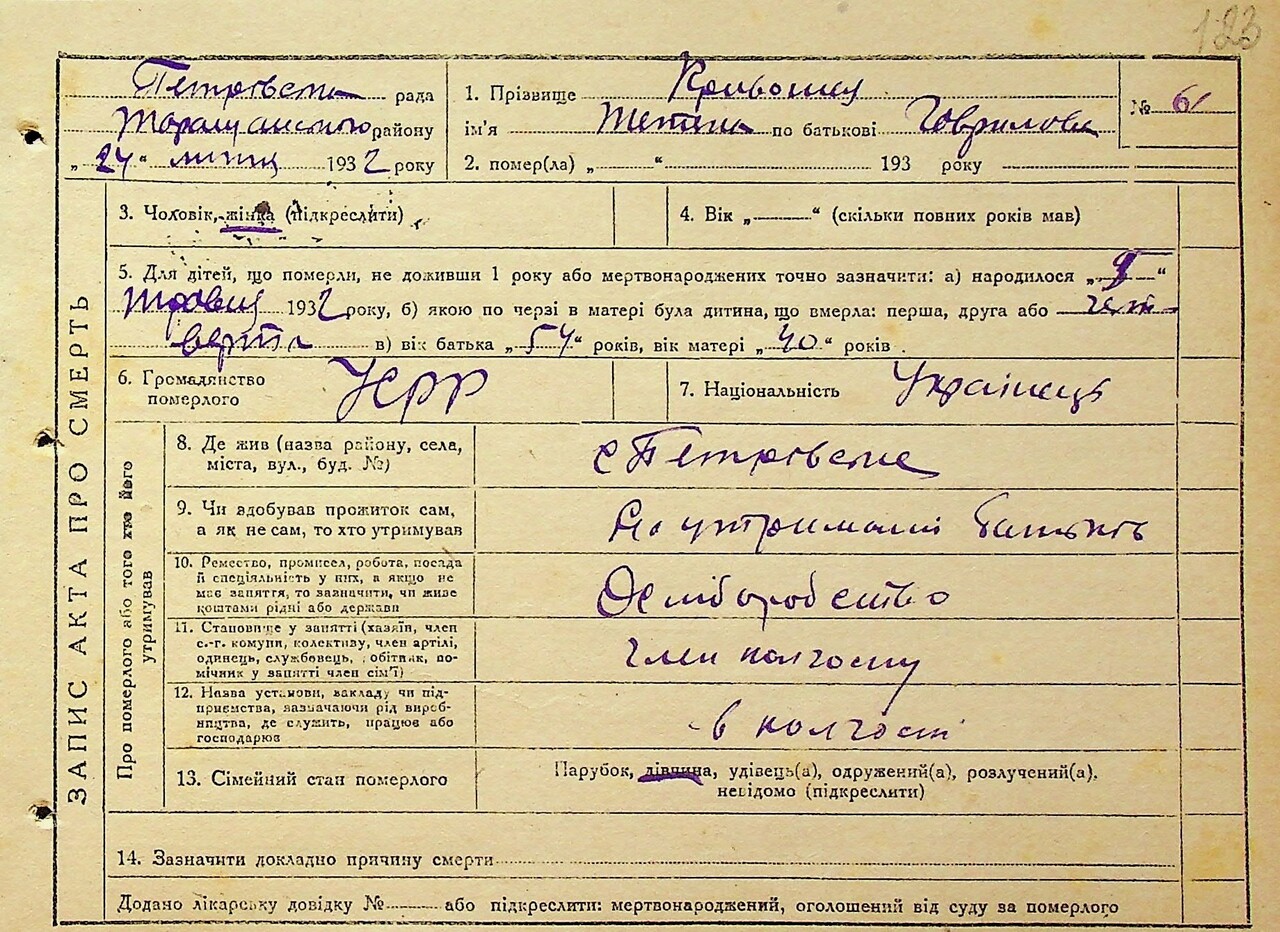 123
Петрівська рада
Таращанського району
„24“ липця 1932 року
1. Прізвище
ім'я Тетяна по батькові Гаврилова
№ 61
2. помер(ла) „ “ 193 року
3. Чоловік, жінка (підкреслити)
4. Вік „ “ (скільки повних років мав)
5. Для дітей, що померли, не доживши 1 року або мертвонароджених точно зазначити: а) народилося „ “
1932 року, б) якою по черзі в матері була дитина, що вмерла: перша, друга або чет-
верта в) вік батька „54“ років, вік матері „40“ років
6. Громадянство
померлого
УСРР
7. Національність Українець
8. Де жив (назва району, села,
міста, вул., буд. №)
с Петрівське
9. Чи здобував прожиток сам,
а як не сам, то хто утримував
На утриманні батьків
10. Ремество, промисел, робота, посада
й спеціяльність у них, а якщо не
має заняття, то зазначити, чи живе
коштами рідні або держави
Хліборобство
11. Становище у занятті (хазяїн, член
с.-г. комуни, колективу, член артілі,
одинець, службовець, робітник, по-
мічник у занятті член сім'ї)
член колгоспу
12. Назва установи, закладу чи під-
приємства, зазначаючи рід вироб-
ництва, де служить, працює або
господарює
в колгоспі
13. Сімейний стан померлого
Парубок, дівчина, удівець(а), одружений(а), розлучений(а),
невідомо (підкреслити)
14. Зазначити докладно причину смерти
Додано лікарську довідку № або підкреслити: мертвонароджений, оголошений від суду за померлого
ЗАПИС АКТА ПРО СМЕРТЬ
Про померлого або того хто його
утримував